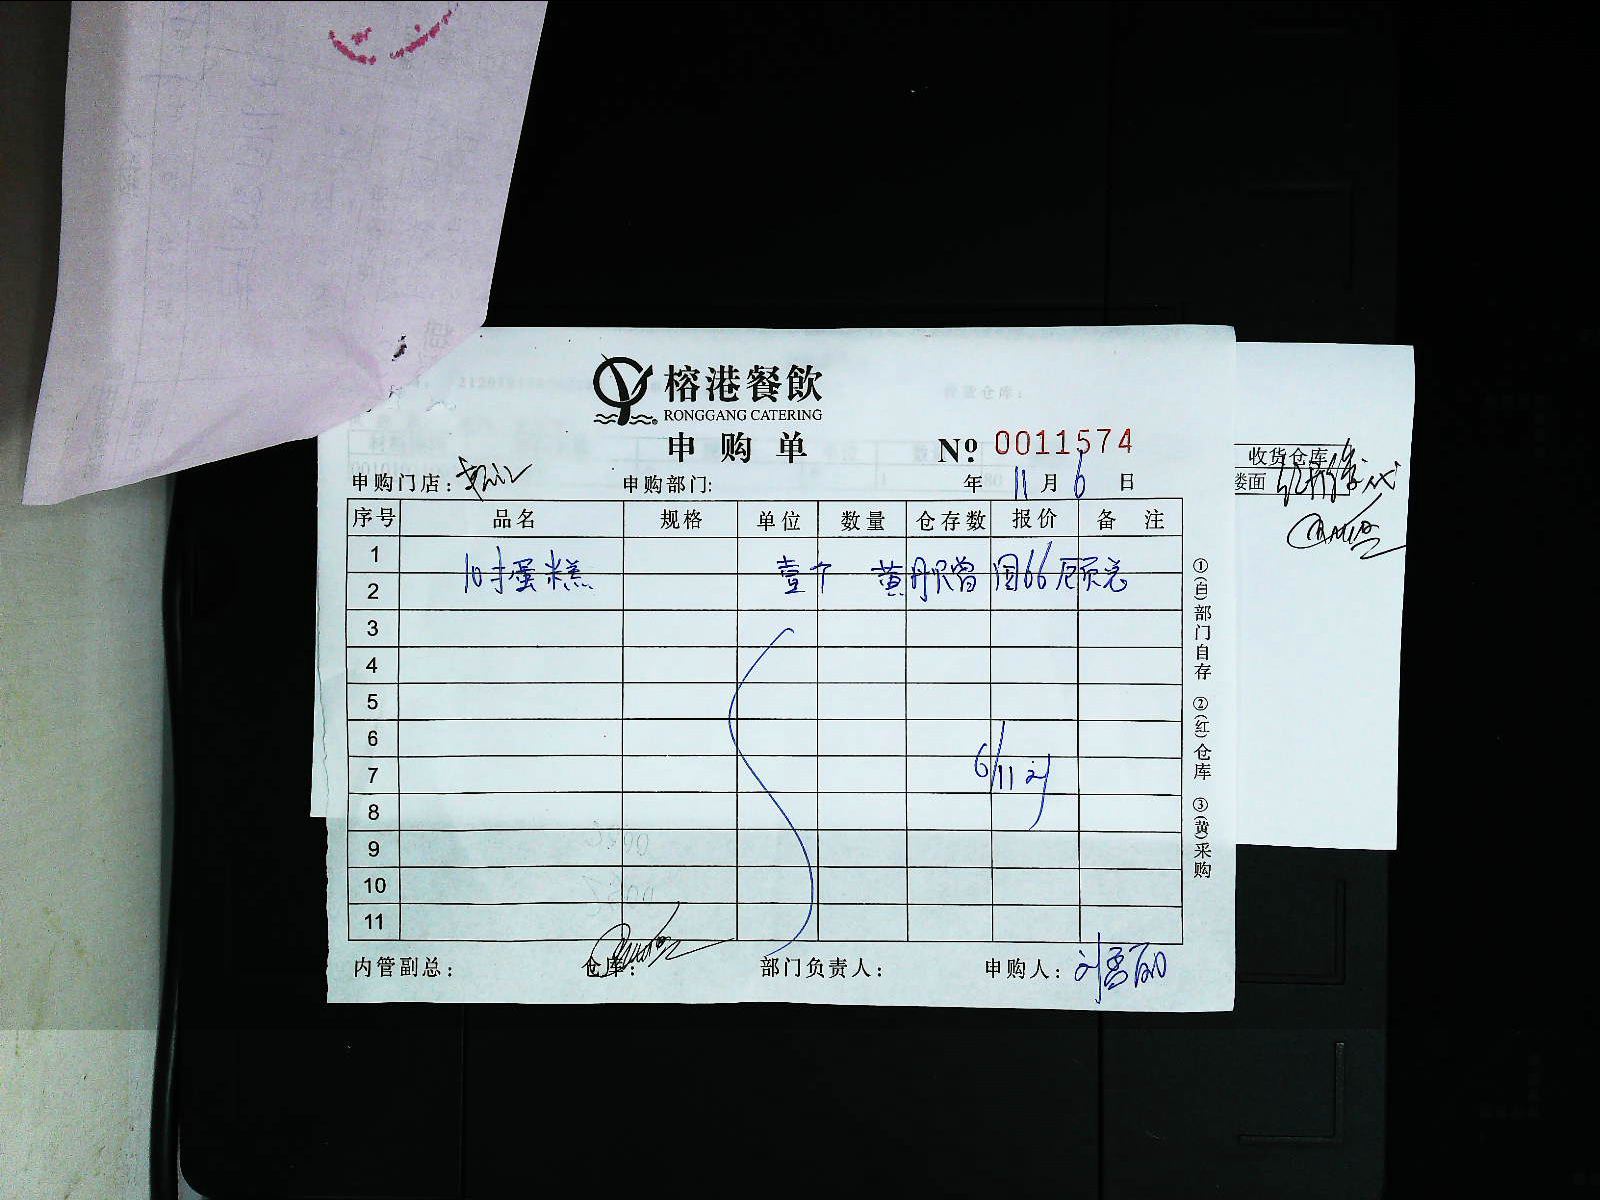 榕港餐飲
RONGGANG CATERING
申购单
№ 0011574
申购门店： 申购部门: 年 11 月 6 日
序号 品名 规格 单位 数量 仓存数 报价 备注
1
2
10寸蛋糕 壹个 黄 曾 图66 顾总
3
4
5
6
7
6/11 刘
8
9
10
11
内管副总： 仓库： 部门负责人： 申购人：刘
①(白)部门自存 ②(红)仓库 ③(黄)采购
收货仓库
楼面